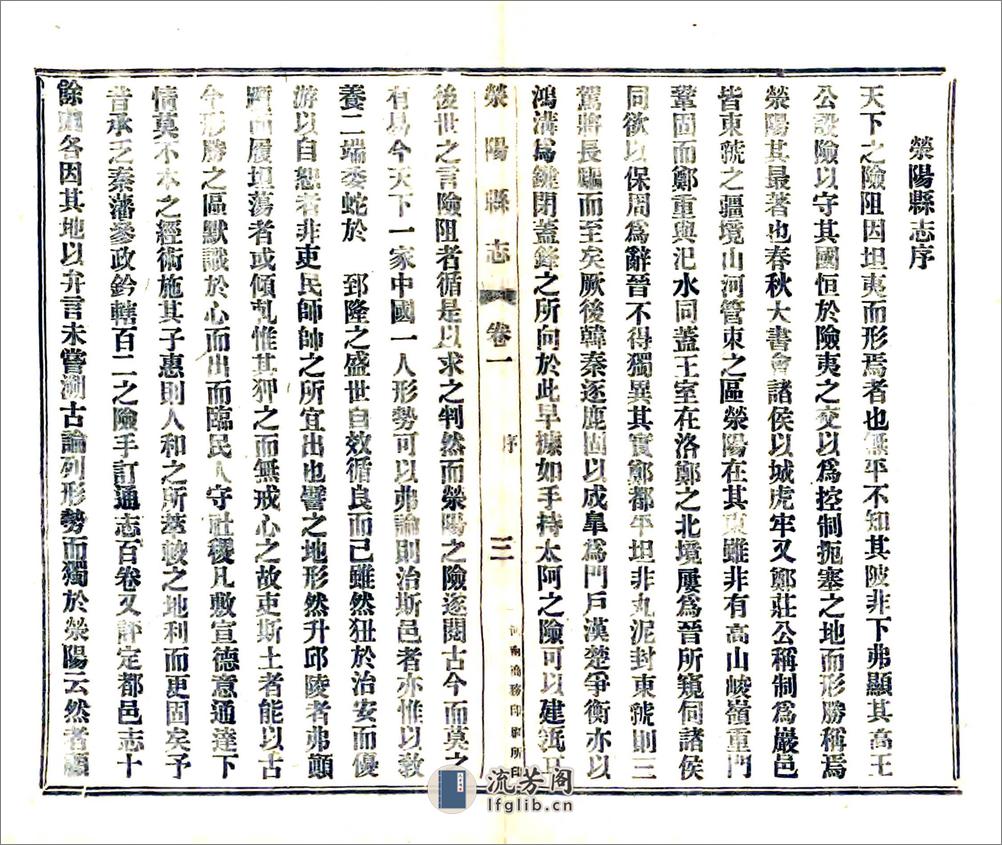 滎陽縣志序
天下之險阻因坦夷而形焉者也無平不知其陂非下弗顯其高王
公設險以守其國恒於險夷之交以爲控制扼塞之地而形勝稱焉
滎陽其最著也春秋大書會諸侯以城虎牢又鄭莊公稱制爲巖邑
皆東虢之疆境山河管束之區滎陽在其東雖非有高山峻嶺重門
鞏固而鄭重與汜水同蓋王室在洛鄭之北境屢爲晉所窺伺諸侯
同欲以保周爲辭晉不得獨異其實鄭都平坦非丸泥封東虢則三
駕將長驅而至矣厥後韓秦逐鹿固以成臯爲門戶漢楚爭衡亦以
鴻溝爲鍵閉蓋鋒之所向於此早據如手持太阿之險可以建瓴且
滎陽縣志
卷一
序
三
河南商務印刷所印
後世之言險阻者循是以求之判然而滎陽之險逐閱古今而莫之
有易今天下一家中國一人形勢可以弗論則治斯邑者亦惟以敎
養二端委蛇於 郅隆之盛世自效循良而已雖然狃於治安而優
游以自恕者非吏民師帥之所宜出也譬之地形然升邱陵者弗顚
躓而履坦蕩者或傾軋惟其狎之而無戒心之故吏斯土者能以古
今形勝之區默識於心而出而臨民人守社稷凡敷宣德意通達下
情莫不本之經術施其子惠則人和之所萃較之地利而更固矣予
昔承乏秦藩參政鈐轄百二之險手訂通志百卷又評定都邑志十
餘處各因其地以弁言未嘗溯古論列形勢而獨於滎陽云然者顧
流芳阁
lfglib.cn